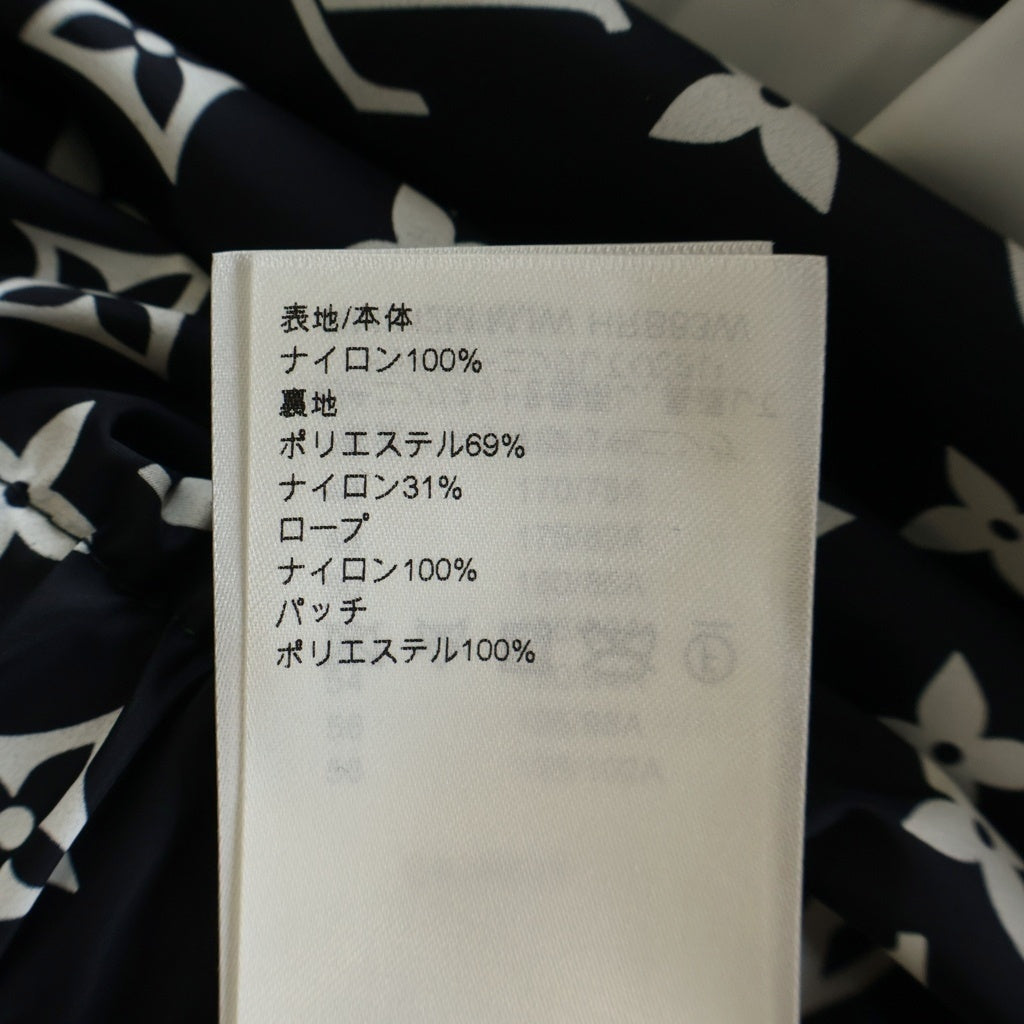 表地/本体
ナイロン100%
裏地
ポリエステル69%
ナイロン31%
ロープ
ナイロン100%
パッチ
ポリエステル100%